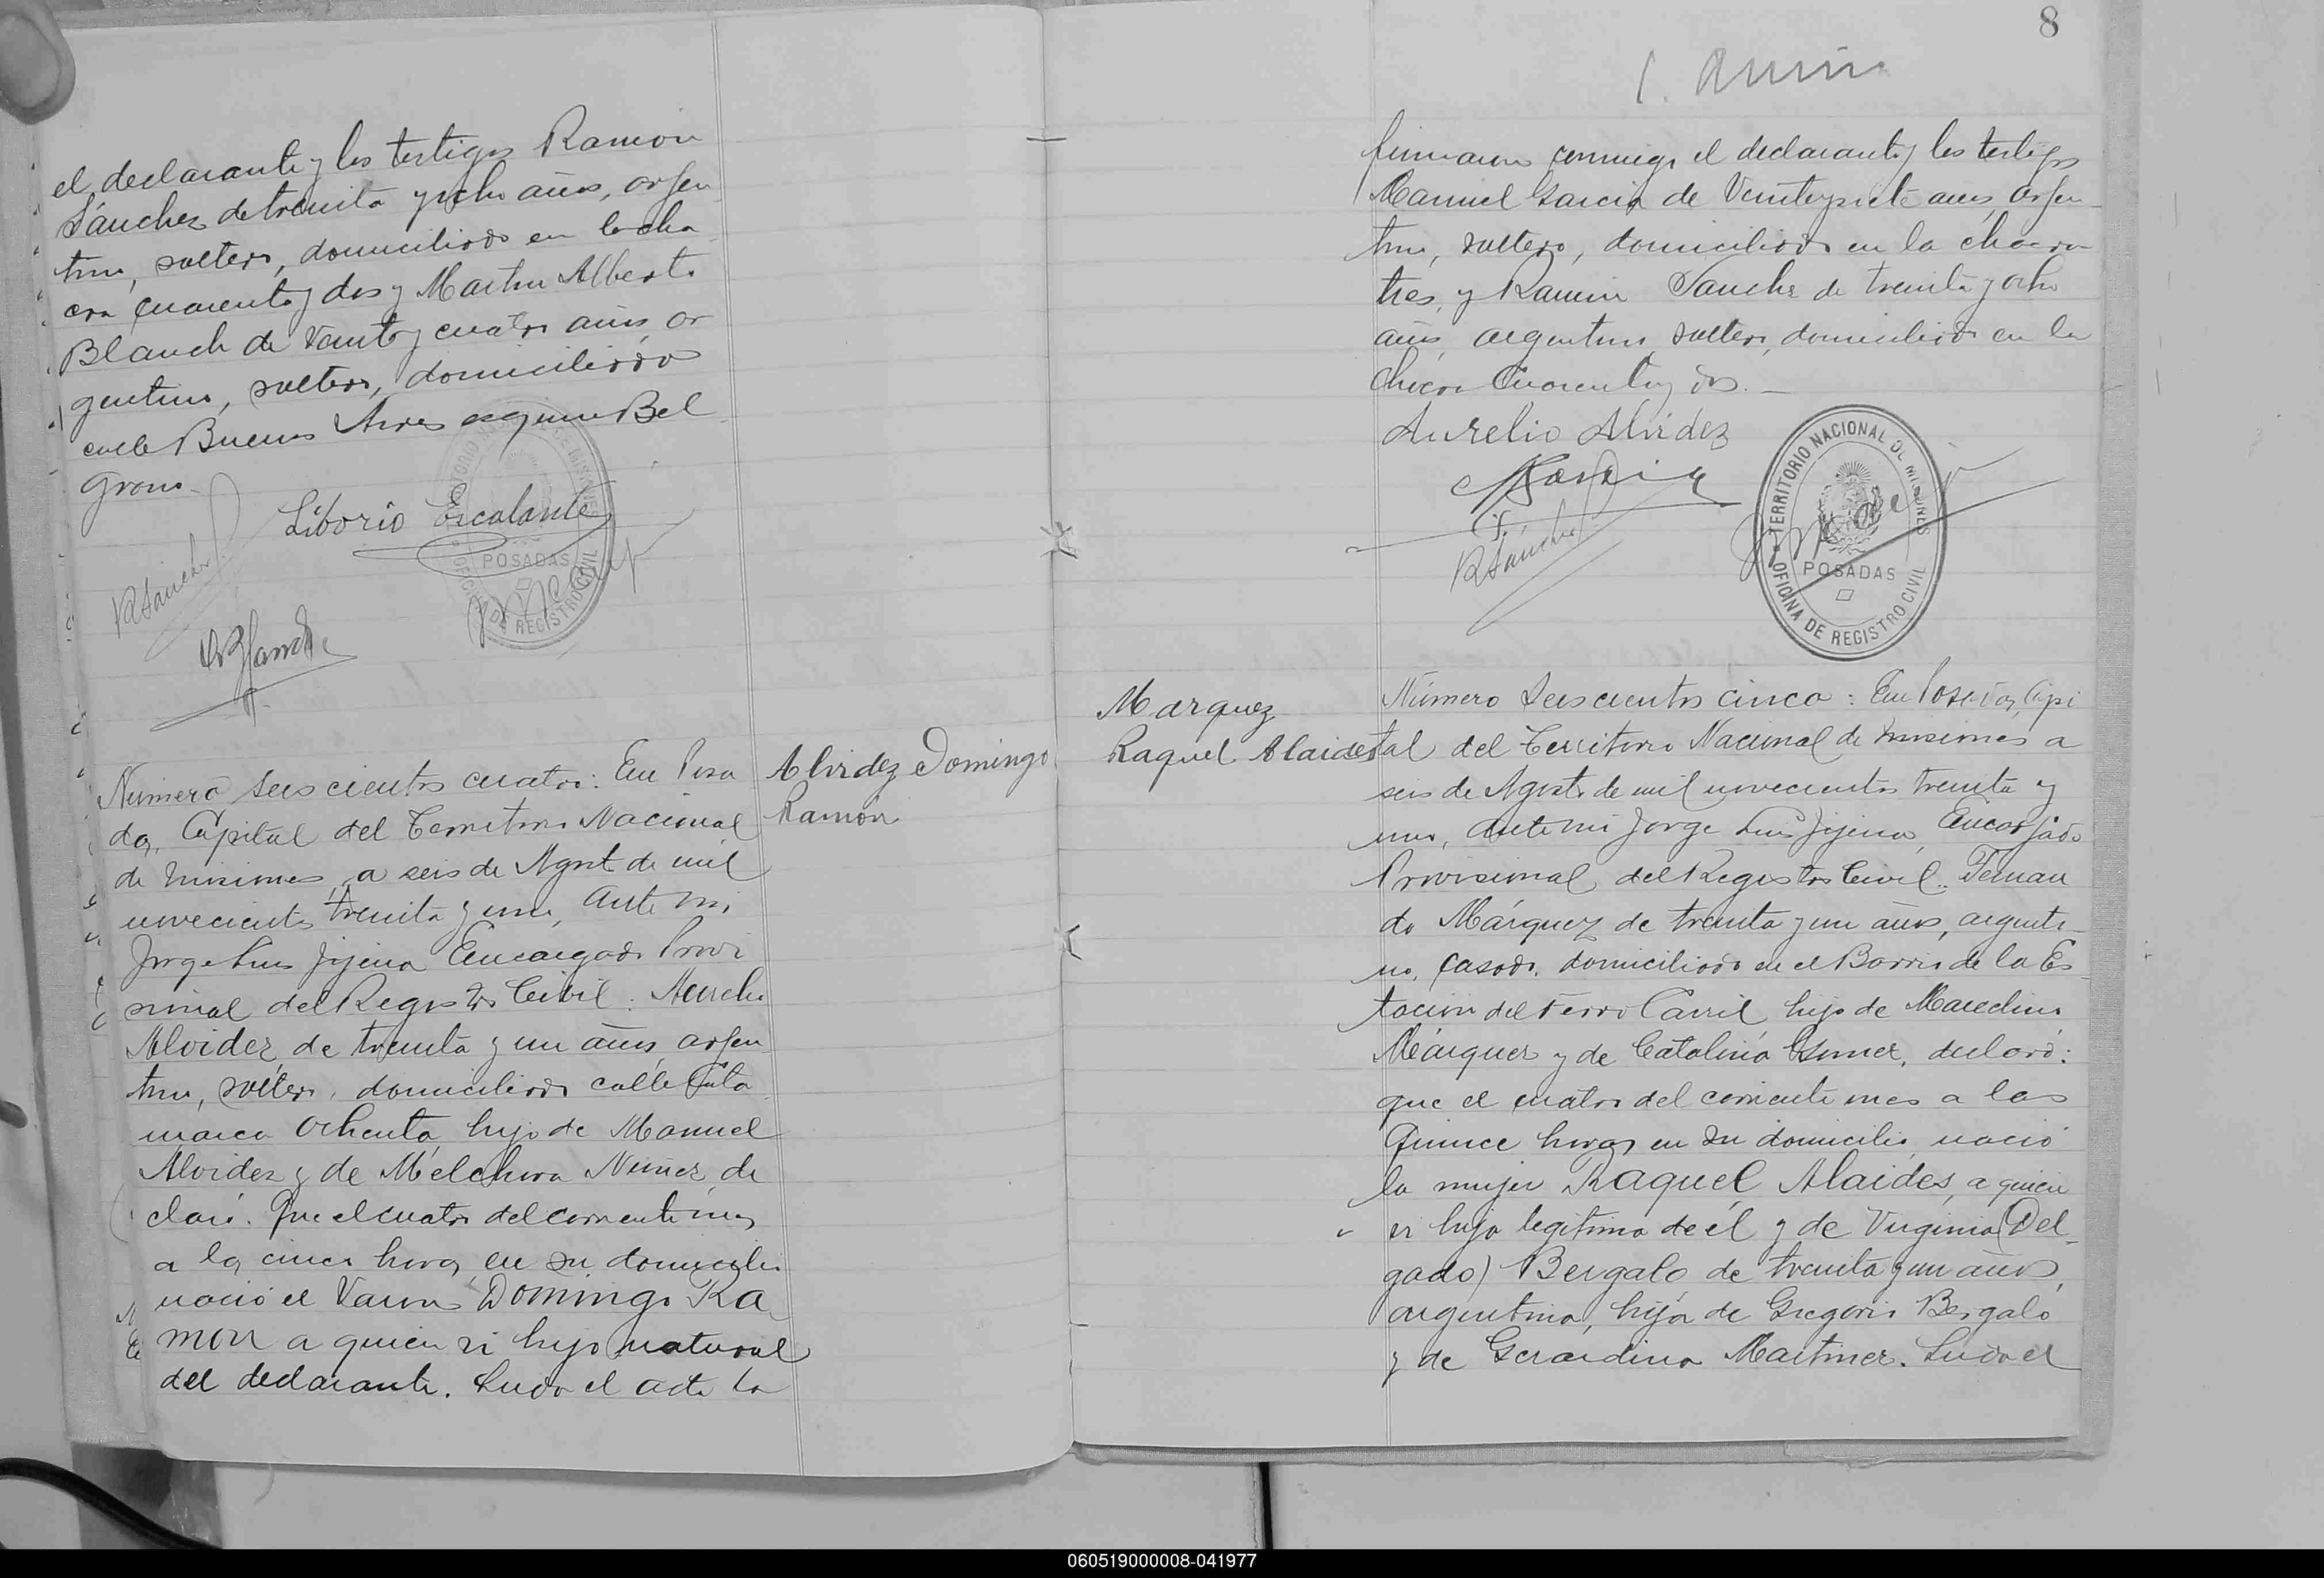 el declarante y los testigos Ramon
Sánchez de treinta y ocho años, argen
tino, soltero, domiciliado en la cha
cra cuarenta y dos y Martin Alberto
Blanch de veinte y cuatro años, ar
gentino, soltero, domiciliado
calle Buenos Aires esquina Bel
grano.
Liborio Escalante
RSánchez
TERRITORIO NACIONAL DE MISIONES
POSADAS
OFICINA DE REGISTRO CIVIL
Número seiscientos cuatro: En Posa
das, Capital del Territorio Nacional
de Misiones, a seis de Agosto de mil
novecientos treinta y uno, ante mi
Jorge Luis Jijena Encargado Provi
sional del Registro Civil: Aurelio
Alvidez, de treinta y un años, argen
tino, soltero, domiciliado calle Cata
marca ochenta, hijo de Manuel
Alvidez y de Melchora Nuñez, de
claró: Que el cuatro del corriente mes,
a las cinco horas, en su domicilio
nació el varon Domingo Ra
mon a quien vi hijo natural
del declarante. Leida el acta la
Alvidez Domingo
Ramón
8
firmaron conmigo el declarante y los testigos
Manuel Garcia de veinte y siete años, argen
tino, soltero, domiciliado en la chacra
tres, y Ramon Sanchez de treinta y ocho
años, argentino, soltero, domiciliado en la
chacra cuarenta y dos.—
Aurelio Alvidez
MGarcia
RSánchez
TERRITORIO NACIONAL DE MISIONES
POSADAS
OFICINA DE REGISTRO CIVIL
Marquez
Raquel Alaides
Número seiscientos cinco: En Posadas, Capi
tal del Territorio Nacional de Misiones a
seis de Agosto de mil novecientos treinta y
uno, ante mi Jorge Luis Jijena, Encargado
Provisional del Registro Civil: Fernan
do Márquez de treinta y un años, argenti-
no, casado, domiciliado en el Barrio de la Es-
tacion del Ferro Carril, hijo de Marcelino
Márquez y de Catalina Gomez, declaró:
que el cuatro del corriente mes a las
quince horas en su domicilio, nació
la mujer Raquel Alaides, a quien
vi hija legitima de él y de Virginia (Del-
gado) Bergalo, de treinta y un años,
argentina, hija de Gregorio Bergalo
y de Gerardina Martinez. Leida el
060519000008-041977